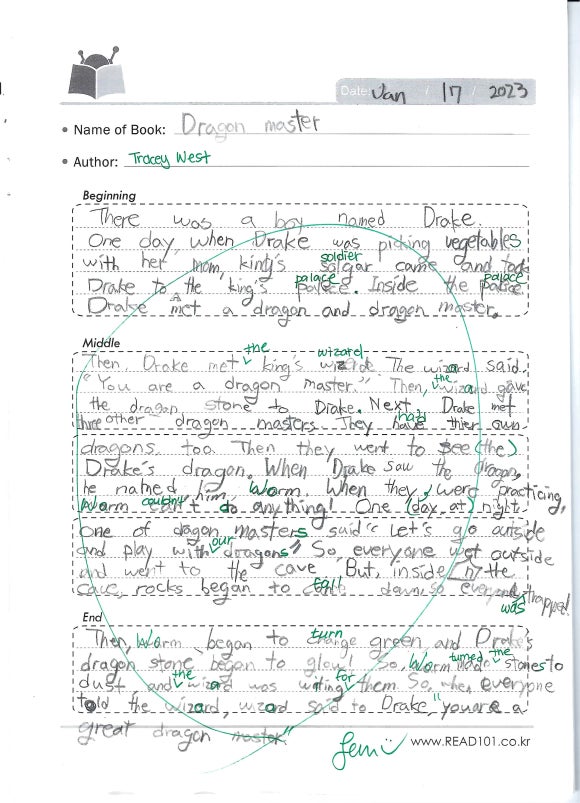 Date: Jan / 17 / 2023
• Name of Book: Dragon master
• Author: Tracey West
Beginning
There was a boy named Drake.
One day, when Drake was picking vegetables
soldier
with her mom, king's solgar came and took
palace palace
Drake to the king's palace. Inside the
Drake met a dragon and dragon master.
Middle
the wizard
Then, Drake met king's The wizard said.
"You are a dragon master." Then, the wizard gave
the dragon stone to Drake. Next, Drake met
had
three other dragon masters. They have thier own
dragons too. Then they went to see (the)
Drake's dragon. When Drake saw the dragon,
he named him, Worm. When they were practicing,
couldn't
Worm can't do anything! One (day at) night
one of dragon masters said " Let's go outside
our
and play with dragons" So, everyone outside
and went to the cave But, inside in the
fall
cave, rocks began to down, so everyone trapped!
was
End
turn
Then, Worm began to change green and Drake's
turned the
dragon stone began to glow! So, Worm stones to
the for
dust, and wizard was waiting them So, when everyone
told the wizard, wizard said to Drake, "you are a
great dragon master."
www.READ101.co.kr